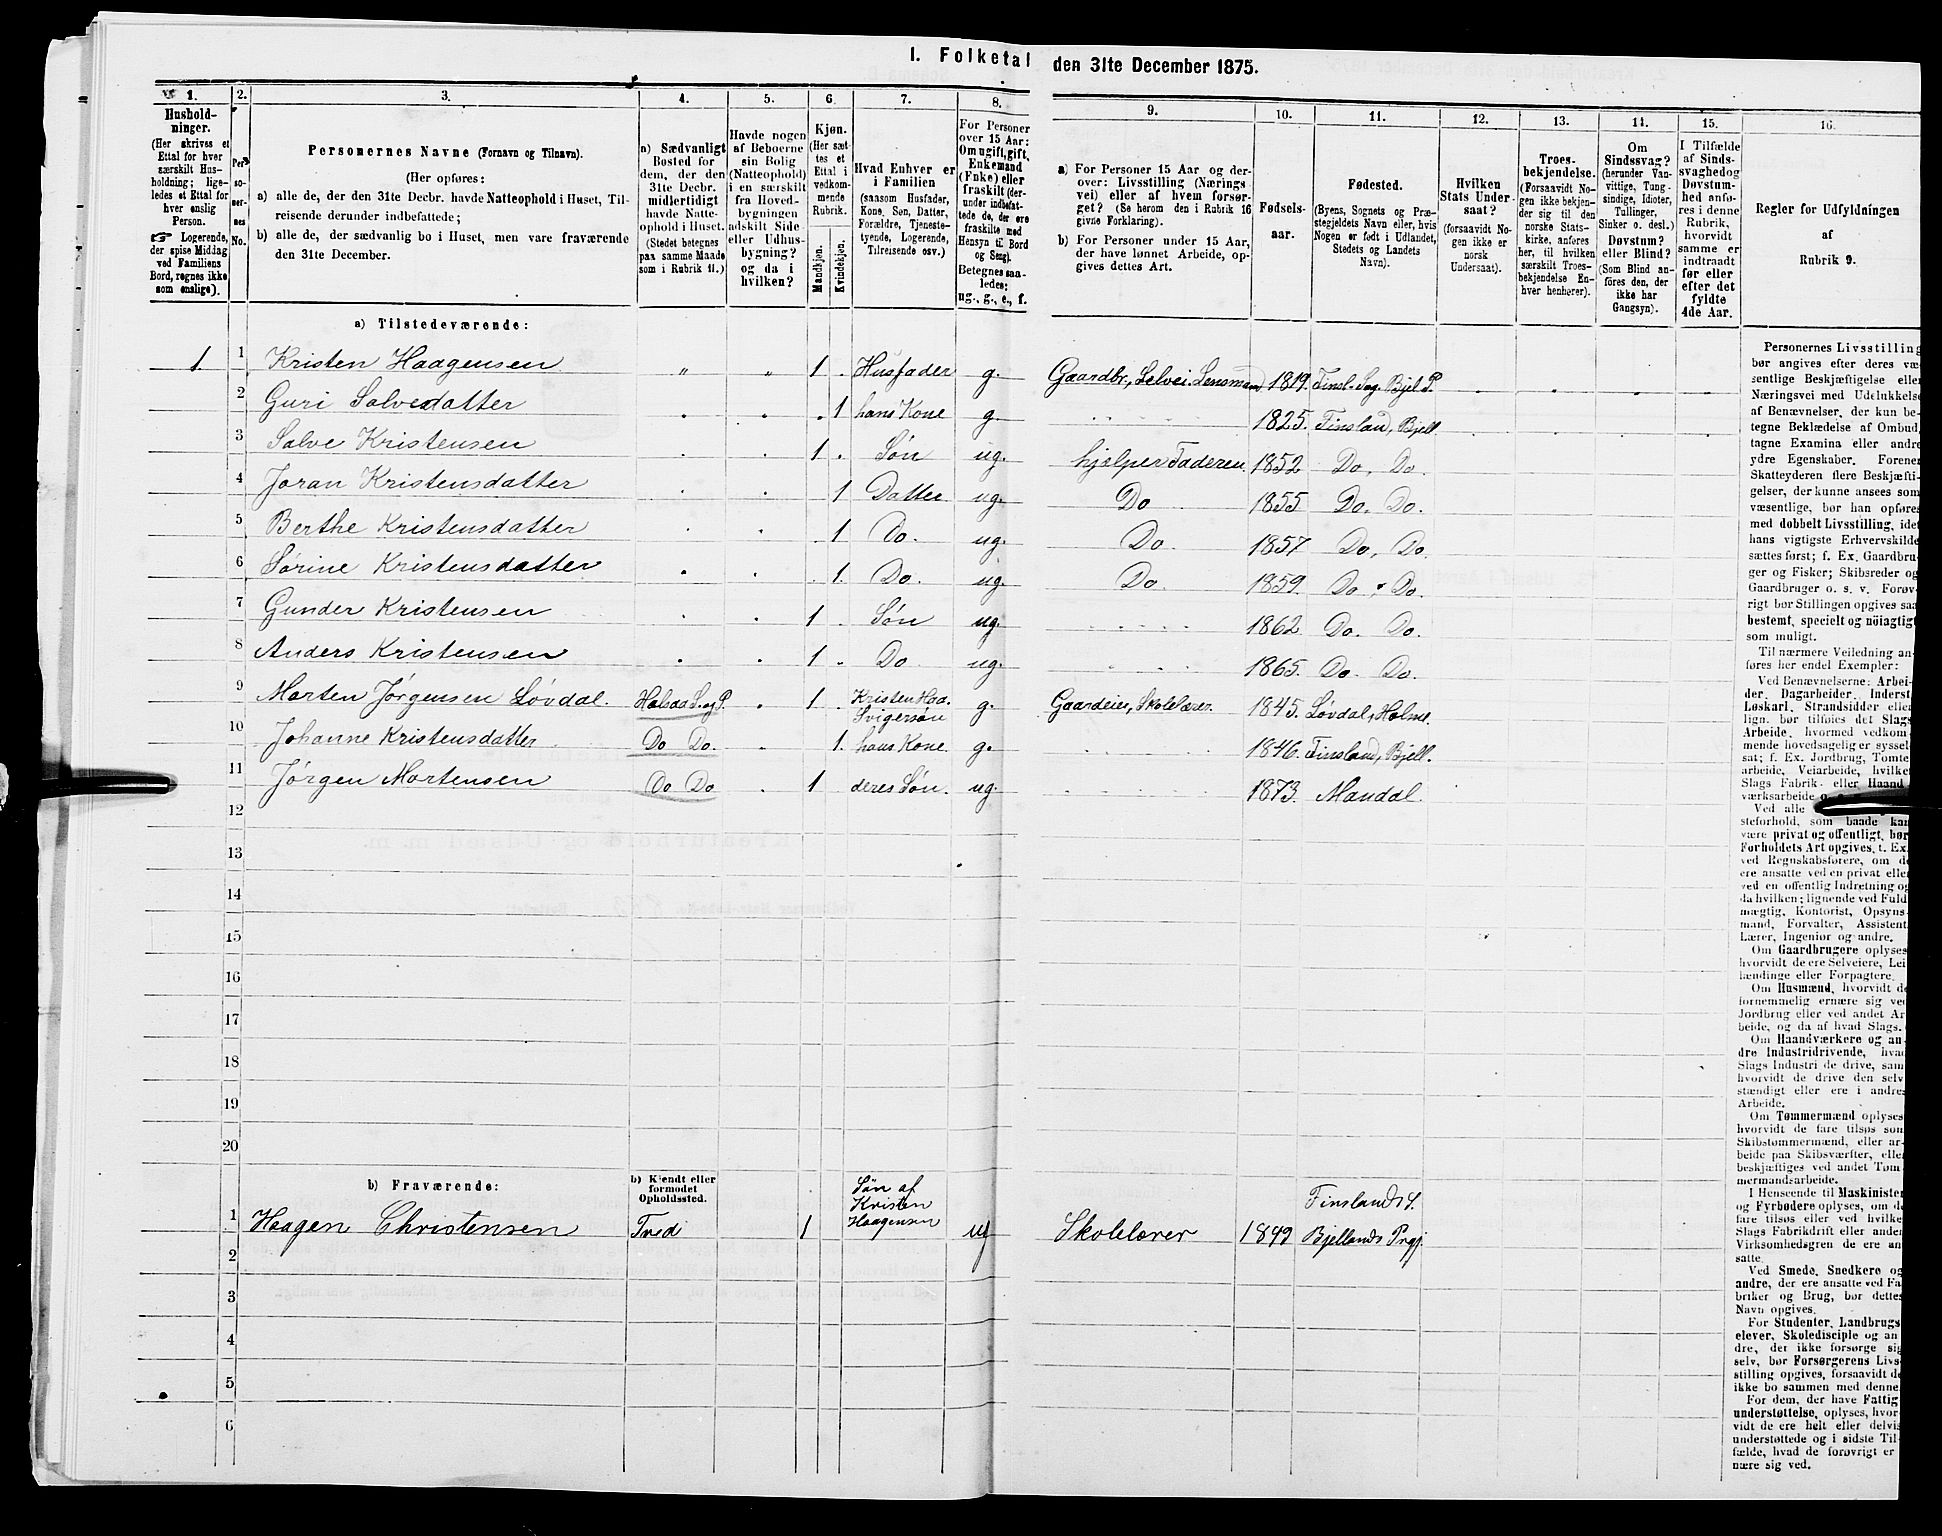 I. Folketal den 31te December 1875.
1. 2. 3. 4. 5. 6. 7. 8. 9. 10. 11. 12. 13. 14. 15. 16.
Hushold-
ninger.
(Her skrives et
Ettal for hver
særskilt Hus-
holdning; lige-
ledes et Ettal for
hver enslig
Person.
☞ Logerende,
der spise Middag
ved Familiens
Bord, regnes ikke
som enslige).
Per-
so-
ner-
nes
No.
Personernes Navne (Fornavn og Tilnavn).
(Her opføres:
a) alle de, der den 31te Decbr. havde Natteophold i Huset, Til-
reisende derunder indbefattede;
b) alle de, der sædvanlig bo i Huset, men vare fraværende
den 31te December.
a) Sædvanligt
Bosted for
dem, der den
31te Decbr.
midlertidigt
havde Natte-
ophold i Huset.
(Stedet betegnes
paa samme Maade
som i Rubrik 11.)
Havde nogen
af Beboerne
sin Bolig
(Natteophold)
i en særskilt
fra Hoved-
bygningen
adskilt Side-
eller Udhus-
bygning?
og da i
hvilken?
Kjøn.
(Her sæt-
tes et
Ettal i
vedkom-
mende
Rubrik.
Mandkjøn.
Kvindekjøn.
Hvad Enhver er
i Familien
(saasom Husfader,
Kone, Søn, Datter,
Forældre, Tjeneste-
tyende, Logerende,
Tilreisende osv.)
For Personer
over 15 Aar:
Om ugift, gift,
Enkemand
(Enke) eller
fraskilt (der-
under indbefat-
tede de, der ere
fraskilte med
Hensyn til Bord
og Seng).
Betegnes saa-
ledes:
ug., g., e., f.
a) For Personer 15 Aar og der-
over: Livsstilling (Nærings-
vei) eller af hvem forsør-
get? (Se herom den i Rubrik 16
givne Forklaring).
b) For Personer under 15 Aar,
der have lønnet Arbeide, op-
gives dettes Art.
Fødsels-
aar.
Fødested.
(Byens, Sognets og Præ-
stegjeldets Navn eller, hvis
Nogen er født i Udlandet,
Stedets og Landets
Navn).
Hvilken
Stats Under-
saat?
(forsaavidt No-
gen ikke er
norsk
Undersaat).
Troes-
bekjendelse.
(Forsaavidt No-
gen ikke bekjen-
der sig til den
norske Stats-
kirke, anføres
her, til hvilken
særskilt Troes-
bekjendelse En-
hver henhører).
Om
Sindssvag?
(herunder Van-
vittige, Tung-
sindige, Idioter,
Tullinger,
Sinker o. desl.)
Døvstum?
eller Blind?
(Som Blind an-
føres den, der
ikke har
Gangsyn).
I Tilfælde
af Sinds-
svaghed og
Døvstum-
hed anfø-
res i denne
Rubrik,
hvorvidt
samme er
indtraadt
før eller
efter det
fyldte
4de Aar.
Regler for Udfyldningen
af
Rubrik 9.
a) Tilstedeværende:
1 1 Kristen Haagensen " " 1 Husfader g. Gaardbr., Selvei. Lensmand 1819. Finsl. Sog. Bjel P.
2 Guri Salvesdatter 1 hans Kone g. 1825. Finsland, Bjell.
3 Salve Kristensen 1 Søn ug. hjælper Faderen 1852 Do. Do.
4 Joran Kristensdatter 1 Datter ug. Do 1855 Do. Do.
5 Berthe Kristensdatter 1 Do. ug. Do. 1857 Do, Do.
6 Sørine Kristensdatter 1 Do. ug. Do 1859 Do. Do.
7 Gunder Kristensen 1 Søn ug. 1862 Do. Do.
8 Anders Kristensen 1 Do. ug. 1865. Do. Do.
9 Morten Jørgensen Løvdal. Halsaa S. og P. 1 Kristen Haa. Svigersøn g. Gaardeier, Skolelærer. 1845. Løvdal, Holme.
10 Johanne Kristensdatter Do Do. 1 hans Kone g. 1846. Finsland, Bjell.
11 Jørgen Mortensen Do Do 1 deres Søn. ug. 1873. Mandal.
12
13
14
15
16
17
18
19
20
b) Fraværende:
b) Kjendt eller
formodet
Opholdssted.
1 Haagen Christensen Trod 1 Søn af Kristen Haagensen ug Skolelærer 1849 Finslands S. Bjellands Prgj.
2
3
4
5
6
Personernes Livsstilling
bør angives efter deres væ-
sentlige Beskjæftigelse eller
Næringsvei med Udelukkelse
af Benævnelser, der kun be-
tegne Beklædelse af Ombud,
tagne Examina eller andre
ydre Egenskaber. Forener
Skatteyderen flere Beskjæfti-
gelser, der kunne ansees som
væsentlige, bør han opføres
med dobbelt Livsstilling, idet
hans vigtigste Erhvervskilde
sættes først; f. Ex. Gaardbru-
ger og Fisker; Skibsreder og
Gaardbruger o. s. v. Forøv-
rigt bør Stillingen opgives saa
bestemt, specielt og nöiagtigt
som muligt.
Til nærmere Veiledning an-
føres her endel Exempler:
Ved Benævnelserne: Arbei-
der, Dagarbeider, Inderst,
Løskarl, Strandsidder eller
lign. bør tilføies det Slags
Arbeide, hvormed vedkom-
mende hovedsagelig er syssel-
sat; f. Ex. Jordbrug, Tomte-
arbeide, Veiarbeide, hvilket
Slags Fabrik- eller Haand-
værksarbeide
Ved alle
steforhold, som baade kan
være privat og offentligt, bør
Forholdets Art opgives, t. Ex.
ved Regnskabsførere, om de
ere ansatte ved en privat eller
ved en offentlig Indretning og
da hvilken; lignende ved Fuld-
mægtig, Kontorist, Opsyns-
mand, Forvalter, Assistent,
Lærer, Ingeniør og andre.
Om Gaardbrugere oplyses,
hvorvidt de ere Selveiere, Lei-
lændinge eller Forpagtere.
Om Husmænd, hvorvidt de
fornemmelig ernære sig ved
Jordbrug eller ved andet Ar-
beide, og da af hvad Slags.
Om Haandværkere og an-
dre Industridrivende, hvad
Slags Industri de drive, samt
hvorvidt de drive den selv-
stændigt eller ere i andres
Arbeide.
Om Tømmermænd oplyses,
hvorvidt de fare tilsøs som
Skibstømmermænd, eller ar-
beide paa Skibsværfter, eller
beskjæftiges ved andet Tøm-
mermandsarbeide.
I Henseende til Maskinister
og Fyrbødere oplyses, om de
fare tilsøs eller ved hvilket
Slags Fabrikdrift eller anden
Virksomhedsgren de ere an-
satte.
Ved Smede, Snedkere og
andre, der ere ansatte ved Fa-
briker og Brug, bør dettes
Navn opgives.
For Studenter, Landbrugs-
elever, Skoledisciple og an-
dre, der ikke forsørge sig
selv, bør Forsørgerens Livs-
stilling opgives, forsaavidt de
ikke bo sammen med denne.
For dem, der have Fattig-
understøttelse, oplyses, hvor-
vidt de ere helt eller delvis
understøttede og i sidste Til-
fælde, hvad de forøvrigt er-
nære sig ved.